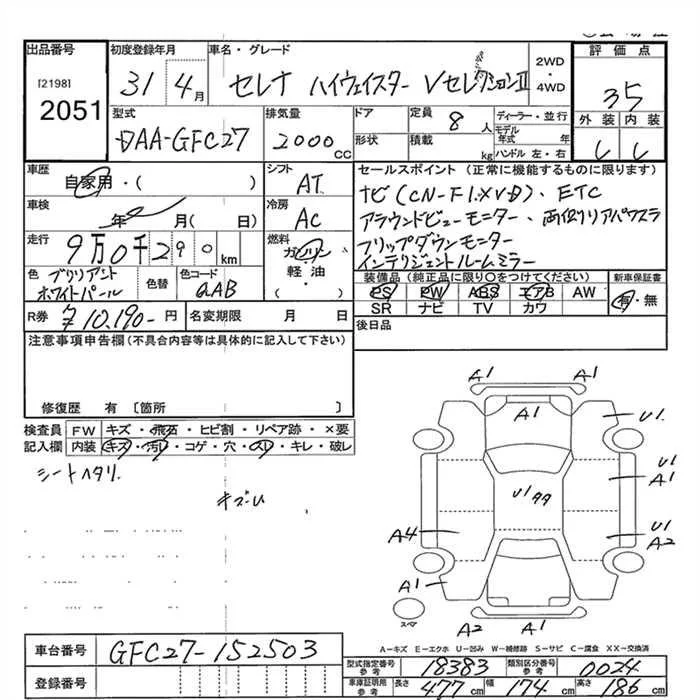 出品番号
[2198]
2051
初度登録年月
31 4月
車名・グレード
セレナ ハイウェイスター VセレクションⅡ
2WD
・
4WD
評価点
35
外装 内装
型式
DAA-GFC27
排気量
2000
CC
ドア
形状
定員
8人
積載
kg
ディーラー・並行
モデル年式 年
ハンドル 左・右
車歴
自家用・( )
シフト
AT
車検
年 月( 日)
冷房
AC
走行
9万0千290km
燃料
ガソリン
軽油
( )
色
ブリリアント
ホワイトパール
色替
色コード
QAB
R券
10,190-円
名変期限 月 日
セールスポイント(正常に機能するものに限ります)
ナビ(CN-F1XVD)、ETC
アラウンドビューモニター、両側リアパワスラ
フリップダウンモニター
インテリジェントルームミラー
装備品(純正品に限り○をつけてください)
PS PW ABS エアB AW
SR ナビ TV カワ
新車保証書
有・無
後日品
注意事項申告欄(不具合内容等は具体的に記入して下さい)
修復歴 有〔箇所 〕
検査員
記入欄
FW キズ・飛石・ヒビ割・リペア跡・×要
内装 キズ・汚れ・コゲ・穴・スレ・キレ・破レ
シートヘタリ.
A1 A1
A1
U1
U1
A1
U1
A4
U1
A2
A1
スペア
A2 A1
A-キズ E-エクボ U-凹み W-補修跡 S-サビ C-腐食 XX-交換済
車台番号
GFC27-152503
登録番号
型式指定番号
参考
18383
類別区分番号
参考
0024
車庫証明用
参考
長さ 477cm
幅 174cm
高さ 186cm